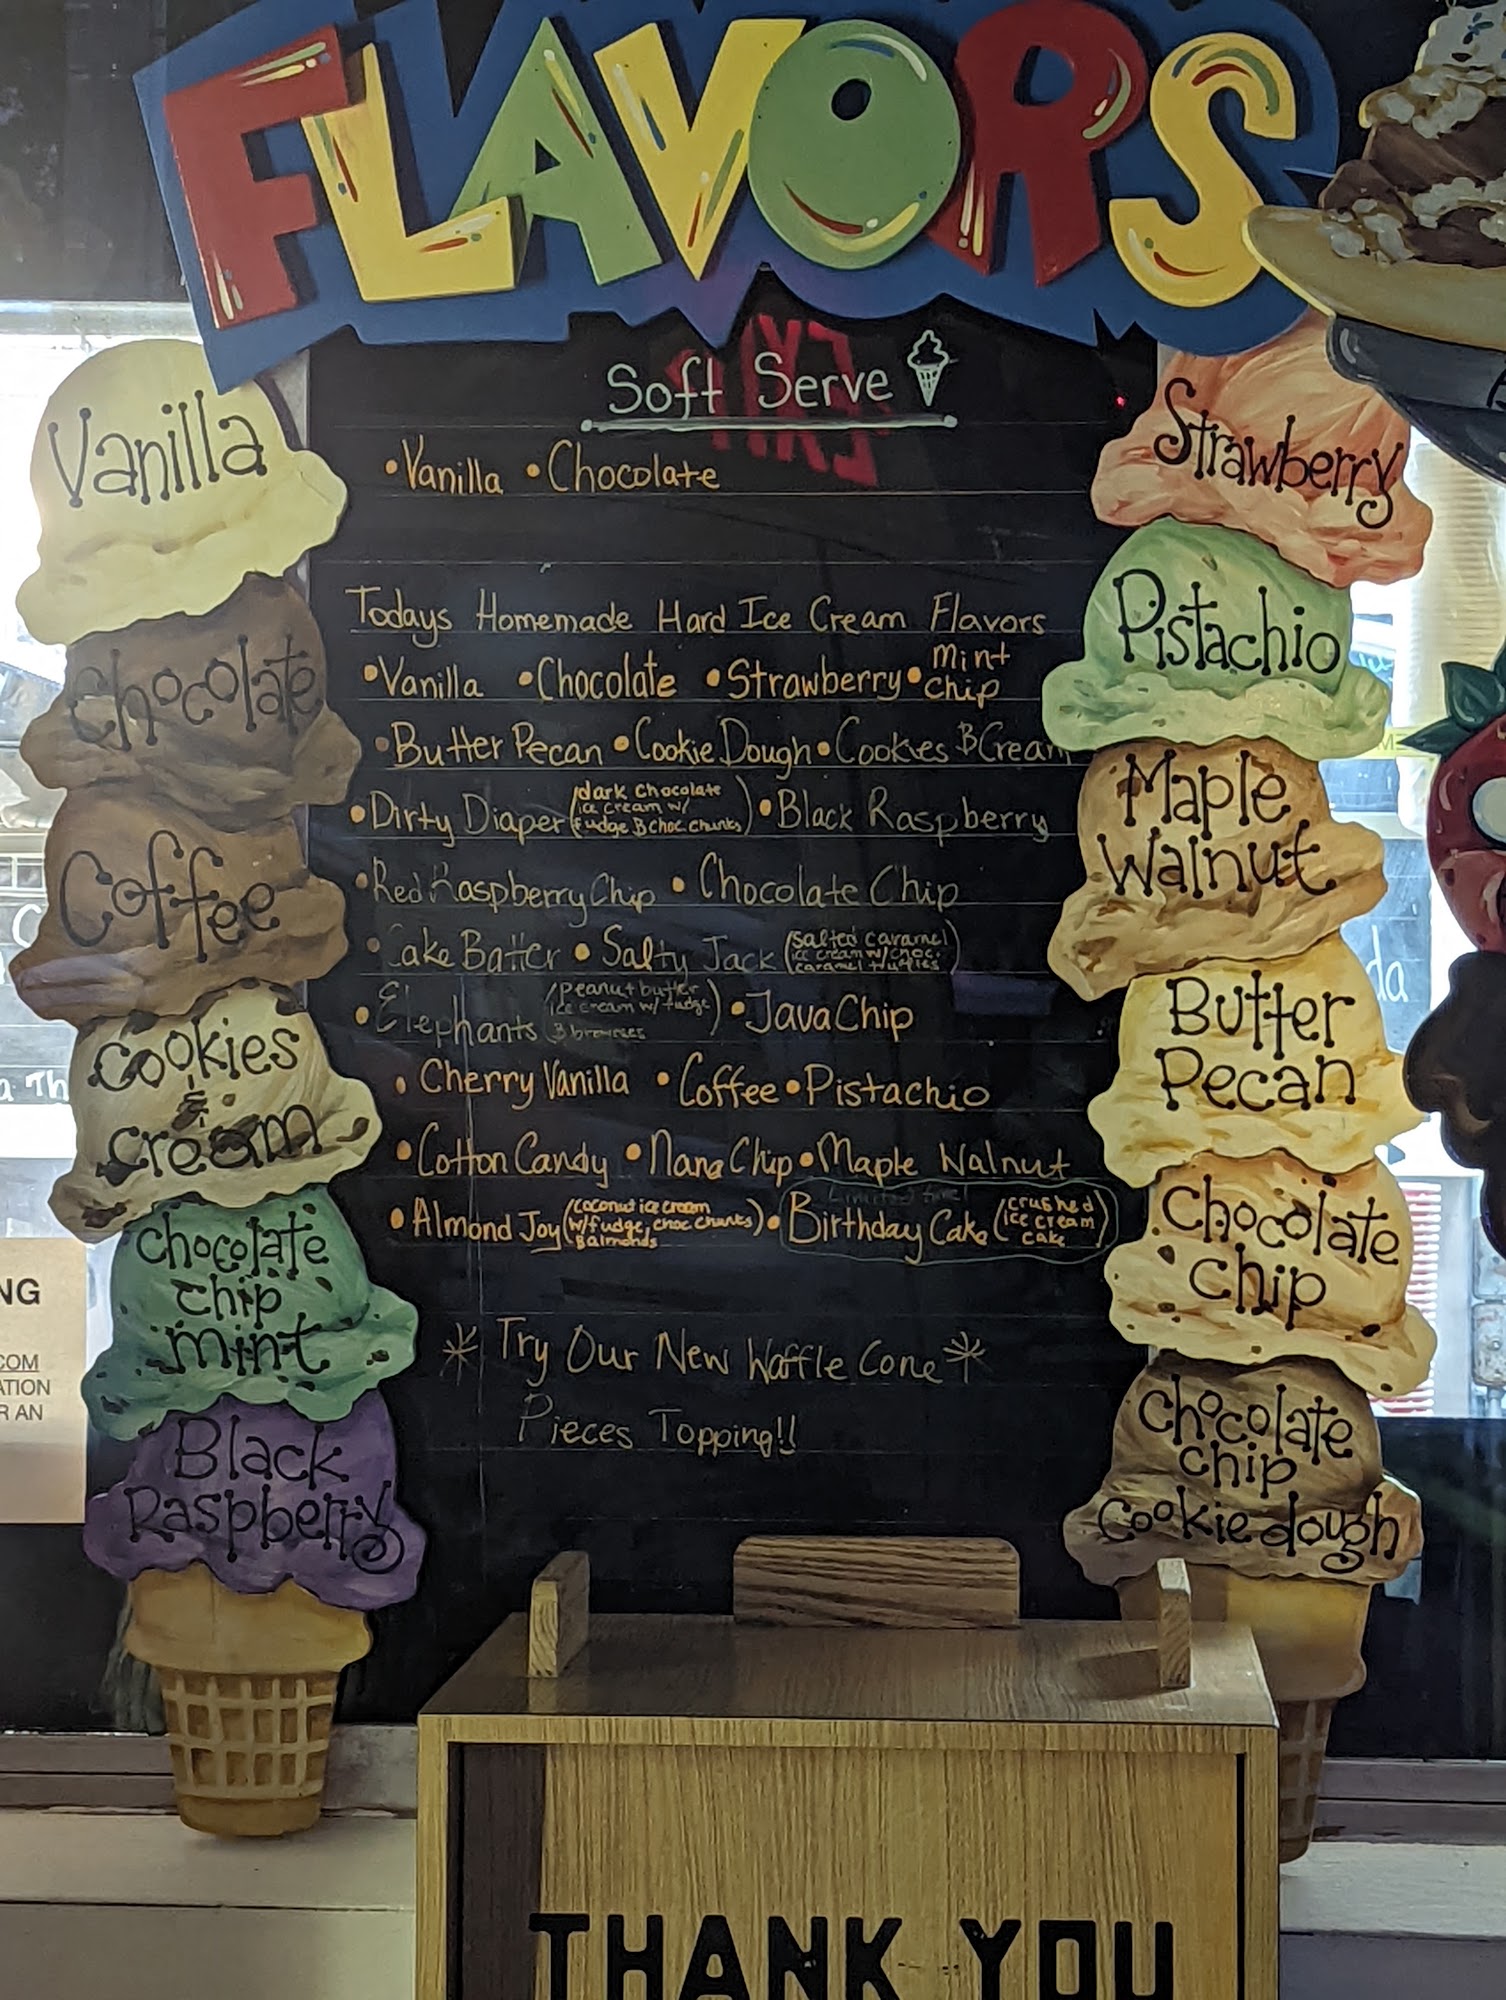 FLAVORS
Soft Serve
•Vanilla •Chocolate
Todays Homemade Hard Ice Cream Flavors
•Vanilla •Chocolate •Strawberry •mint chip
•Butter Pecan •Cookie Dough •Cookies & Cream
•Dirty Diaper (dark chocolate ice cream w/ fudge & choc. chunks) •Black Raspberry
•Red Raspberry Chip •Chocolate Chip
•Cake Batter •Salty Jack (salted caramel ice cream w/ choc. caramel truffles)
•Elephants (peanut butter ice cream w/ fudge & brownies) •Java Chip
•Cherry Vanilla •Coffee •Pistachio
•Cotton Candy •Nana Chip •Maple Walnut
•Almond Joy (coconut ice cream w/ fudge, choc. chunks & almonds) •Limited time! Birthday Cake (crushed ice cream cake)
*Try Our New Waffle Cone*
Pieces Topping!!
Vanilla
Chocolate
Coffee
Cookies
&
cream
chocolate
chip
mint
Black
Raspberry
Strawberry
Pistachio
Maple
Walnut
Butter
Pecan
Chocolate
chip
chocolate
chip
cookie dough
NG
COM
ATION
R AN
a Th
da
THANK YOU